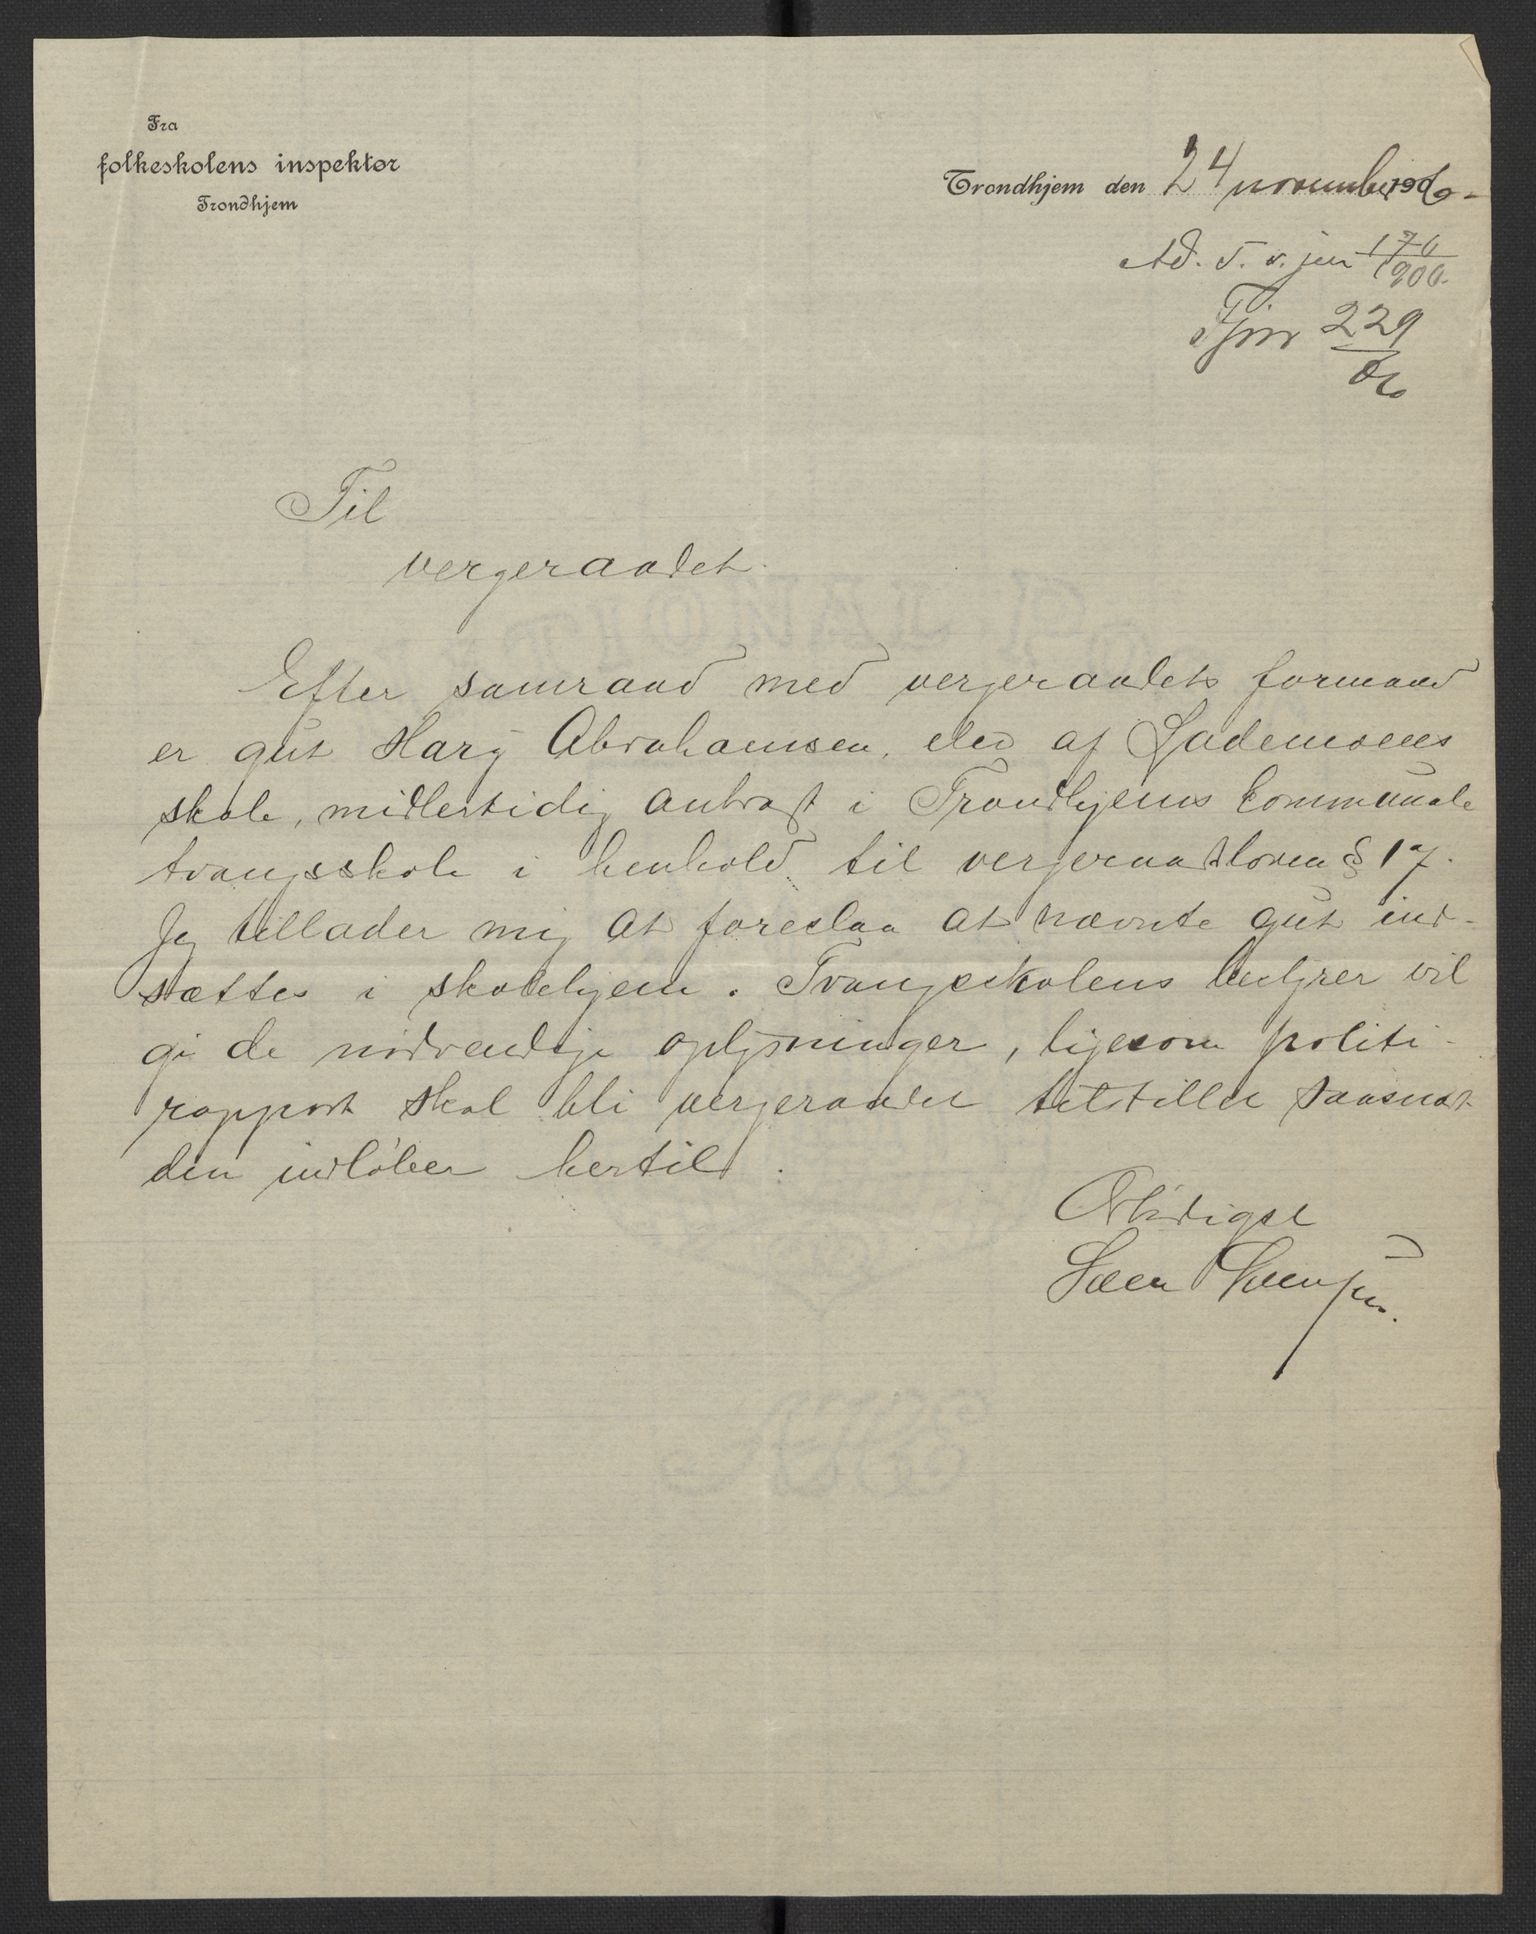 Fra
folkeskolens inspektør
Trondhjem
Trondhjem den 24 november 1906.
Ad. T. v. jnr 176/1906.
Tjnr 229/06
Til
vergeraadet.
Efter samraad med vergeraadets formand
er gut Harij Abrahamsen, elev af Lademoens
skole, midlertidig anbragt i Trondhjems kommunale
tvangsskole i henhold til vergeraadsloven § 17.
Jeg tillader mig at foreslaa at nævnte gut ind-
sættes i skolehjem. Tvangsskolens bestyrer vil
gi de nødvendige oplysninger, ligesom politi-
rapport skal bli vergeraadet tilstillet saasnart
den indløber hertil.
Ærbødigst